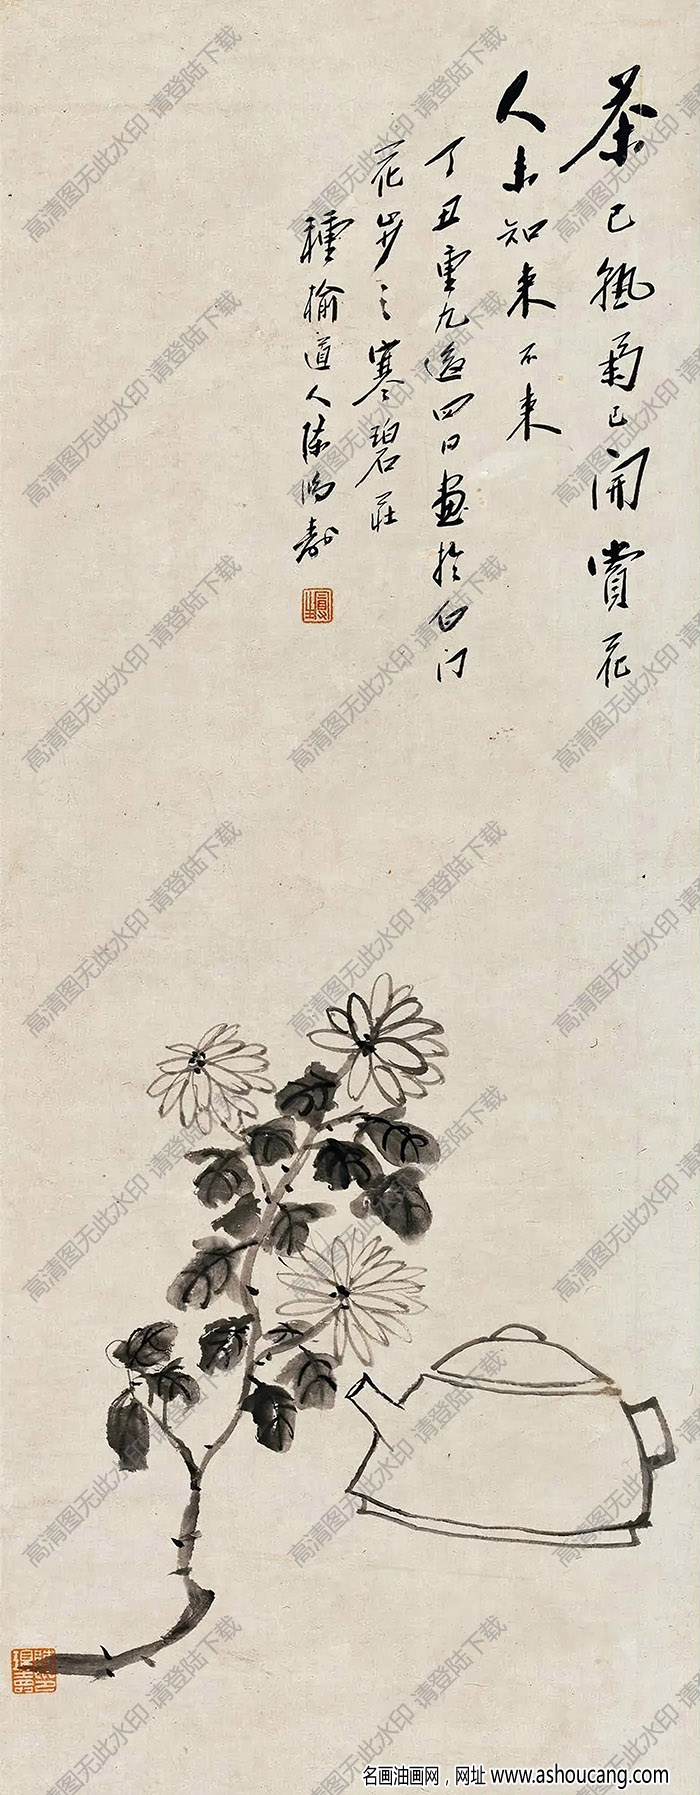 茶已熟菊已開賞花
人未知来不来
丁丑重九後四日画於白门
花步之寒碧莊
種榆道人陈鸿壽
高清图无此水印 请登陆下载
名画油画网，网址 www.ashoucang.com